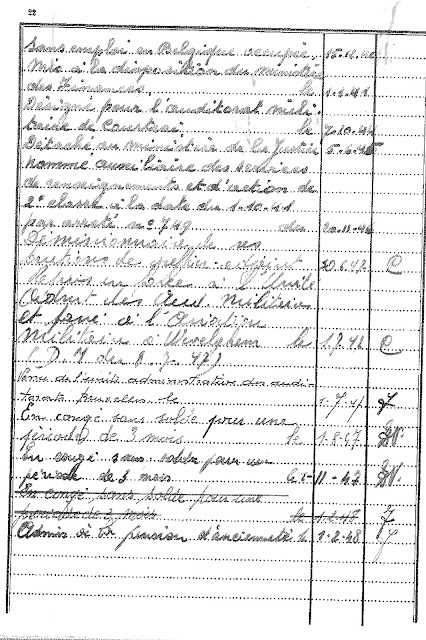 22
Sans emploi en Belgique occupée. 15.12.40
Mis à la disposition du ministère
des Finances, le 1.1.41
Désigné pour l'auditorat mili-
taire de Courtrai, le 7.10.44
Détaché au ministère de la Justice 5.4.45
nommé auxiliaire des services
de renseignements et d'action de
2e classe à la date du 1-10-41
par arrêté no 749 du 20.11.46
Démissionnaire de ses
fonctions de greffier-adjoint 30.6.47 C
à l'Unité
Militaires
et passé à l'Aviation
Militaire à Wevelghem le 1.7.47 C
(D.M du 8.7.47)
Venu de l'unité administrative des audi-
torats Bruxelles le 1.7.47 J
En congé sans solde pour une
période de 3 mois le 1.8.47
En congé sans solde pour une
période de 3 mois le 1-11-47
En congé sans solde pour une
période de 3 mois le 1.2.48 J
Admis à la pension d'ancienneté le 1-2-48 J